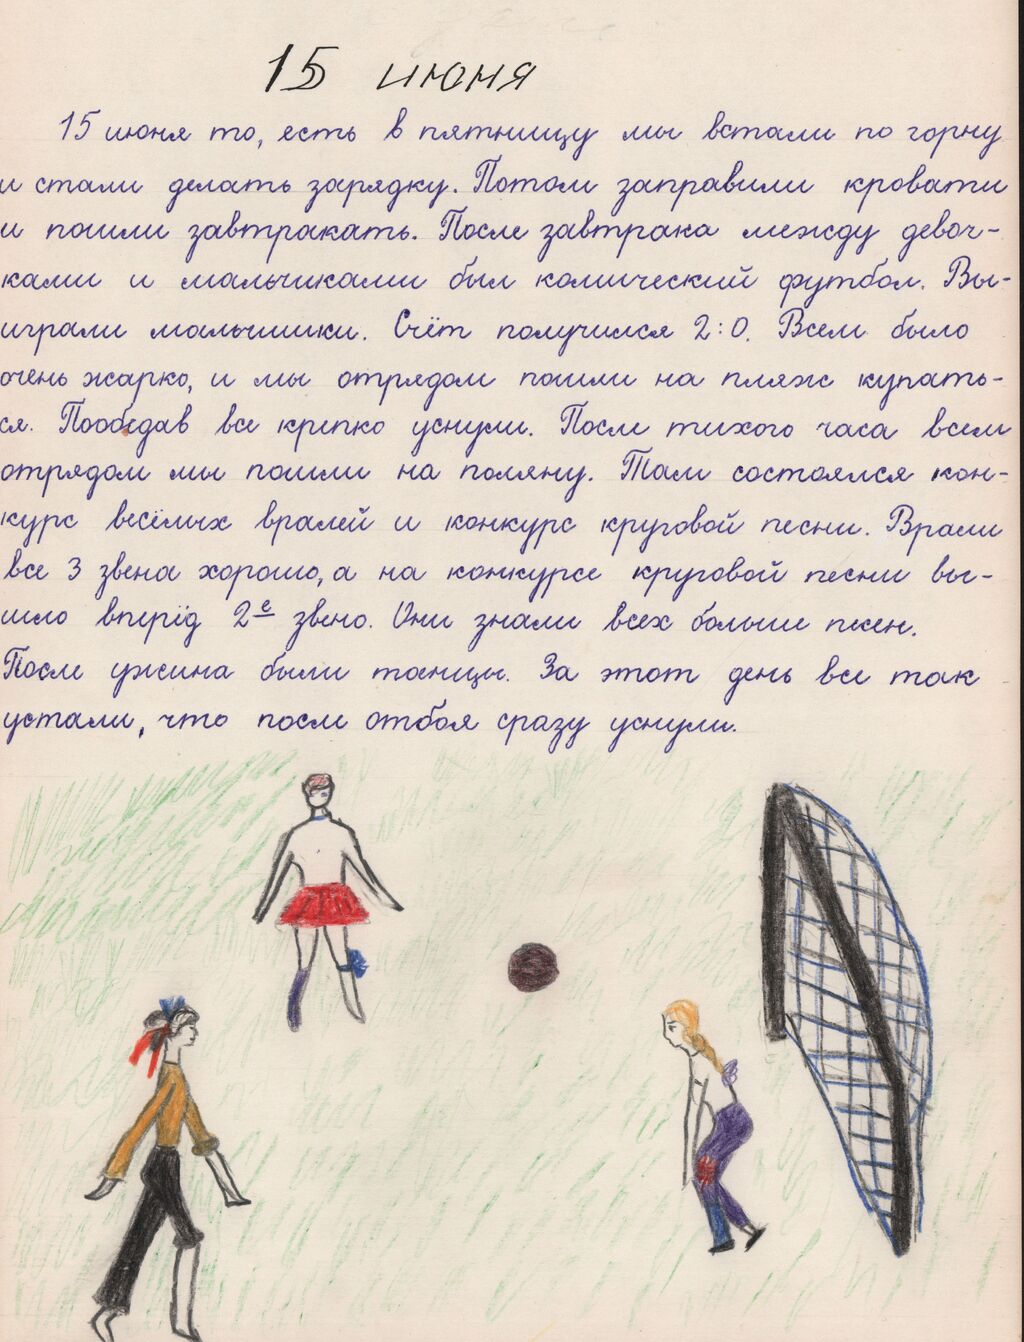 15 июня
15 июня то, есть в пятницу мы встали по горну
и стали делать зарядку. Потом заправили кровати
и пошли завтракать. После завтрака между девоч-
ками и мальчиками был комический футбол. Вы-
играли мальчишки. Счёт получился 2:0. Всем было
очень жарко, и мы отрядом пошли на пляж купать-
ся. Пообедав все крепко уснули. После тихого часа всем
отрядом мы пошли на поляну. Там состоялся кон-
курс весёлых вралей и конкурс круговой песни. Врали
все 3 звена хорошо, а на конкурсе круговой песни вы-
шло вперёд 2е звено. Они знали всех больше песен.
После ужина были танцы. За этот день все так
устали, что после отбоя сразу уснули.